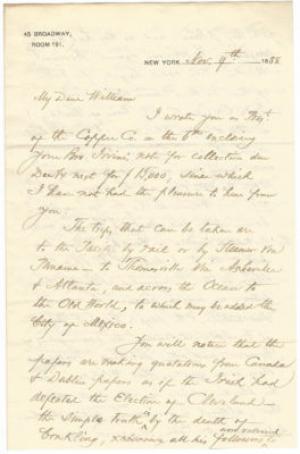 45 BROADWAY,
ROOM 191.
NEW YORK, Nov. 9th 1888
My Dear William
I wrote you as Trst.
of the Copper Co. on the 6th enclosing
your Bro note for collection due
next for $15,000, since which
I have not had the pleasure to hear from
you.
The trips that can be taken are
to the Pacific by rail or by Steamer via
Panama - to Thomasville via Asheville
& Atlanta, and across the Ocean to
the Old World, to which may be added the
City of Mexico.
You will notice that the
papers are making quotations from Canada
& Dublin papers as if the Irish had
defeated the Election of Cleveland -
the simple truth is by the death of
Conkling, all his followers